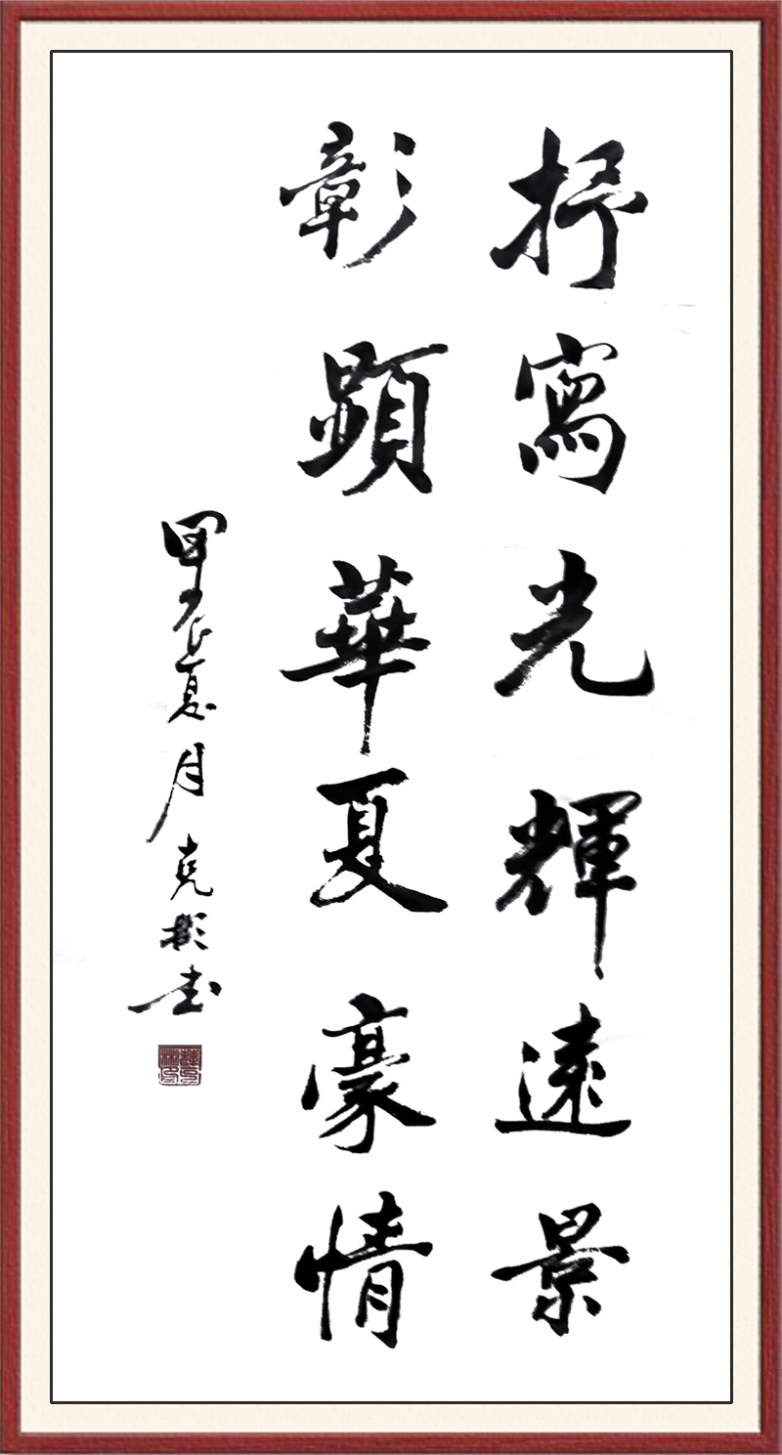 抒寫光輝遠景
彰顯華夏豪情
甲辰夏月彬书